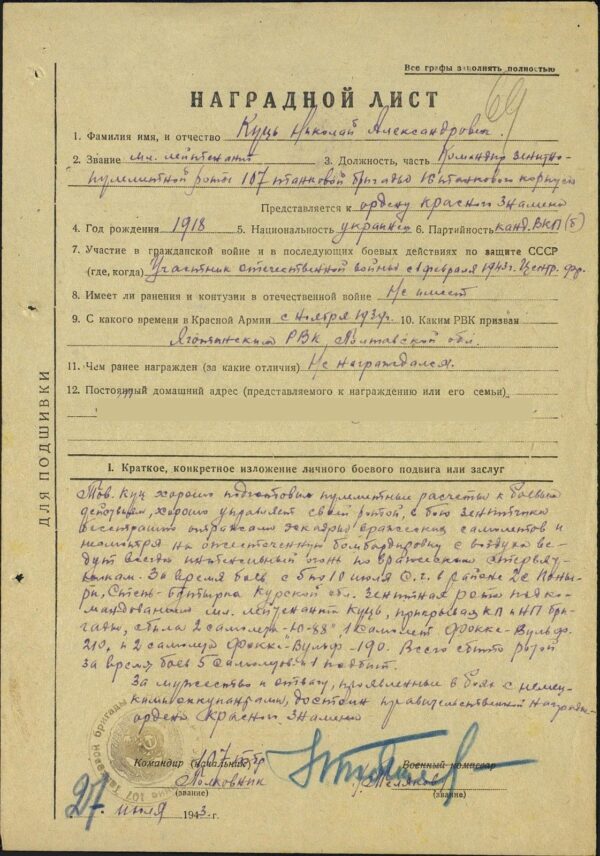 69
Все графы заполнять полностью
НАГРАДНОЙ ЛИСТ
1. Фамилия имя, и отчество Куць Николай Александрович
2. Звание мл. лейтенант 3. Должность, часть Командир зенитно-
пулеметной роты 107 танковой бригады 16 танкового корпуса
Представляется к ордену Красного Знамени
4. Год рождения 1918 5. Национальность украинец 6. Партийность канд. ВКП(б)
7. Участие в гражданской войне и в последующих боевых действиях по защите СССР
(где, когда) Участник отечественной войны с 1 февраля 1943 г. Центр. фр.
8. Имеет ли ранения и контузии в отечественной войне Не имеет
9. С какого времени в Красной Армии с ноября 1939 г. 10. Каким РВК призван
Яготинским РВК, Полтавской обл.
11. Чем ранее награжден (за какие отличия) Не награждался.
12. Постоянный домашний адрес (представляемого к награждению или его семьи)
ДЛЯ ПОДШИВКИ
I. Краткое, конкретное изложение личного боевого подвига или заслуг
Тов. Куц хорошо подготовил пулеметные расчеты к боевым
действиям, хорошо управляет своей ротой, в бою зенитчики
бесстрашно отражали эскадры вражеских самолетов и
несмотря на ожесточенную бомбардировку с воздуха ве-
дут всегда интенсивный огонь по вражеским стервят-
никам. За время боев с 5 по 10 июля с.г. в районе 2е Поны-
ри, Степь-Бутырки Курской обл. зенитная рота под ко-
мандованием мл. лейтенант Куць, прикрывая КП и НП бри-
гады, сбила 2 самолета "Ю-88" 1 самолет Фокке-Вульф-
210, и 2 самолета Фокке-Вульф-190. Всего сбито ротой
за время боев 5 самолетов и 1 подбит.
За мужество и отвагу, проявленные в боях с немец-
кими оккупантами, достоин правительственной награды-
ордена Красное Знамя
Командир (начальник) 107 тбр Военный комиссар
Полковник /Теляков/
(звание) (звание)
27 июля 1943 г.
107 Танковой бригады